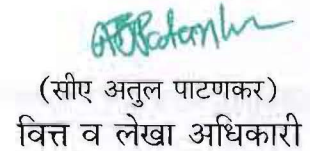 (सीए अतुल पाटणकर)
वित्त व लेखा अधिकारी